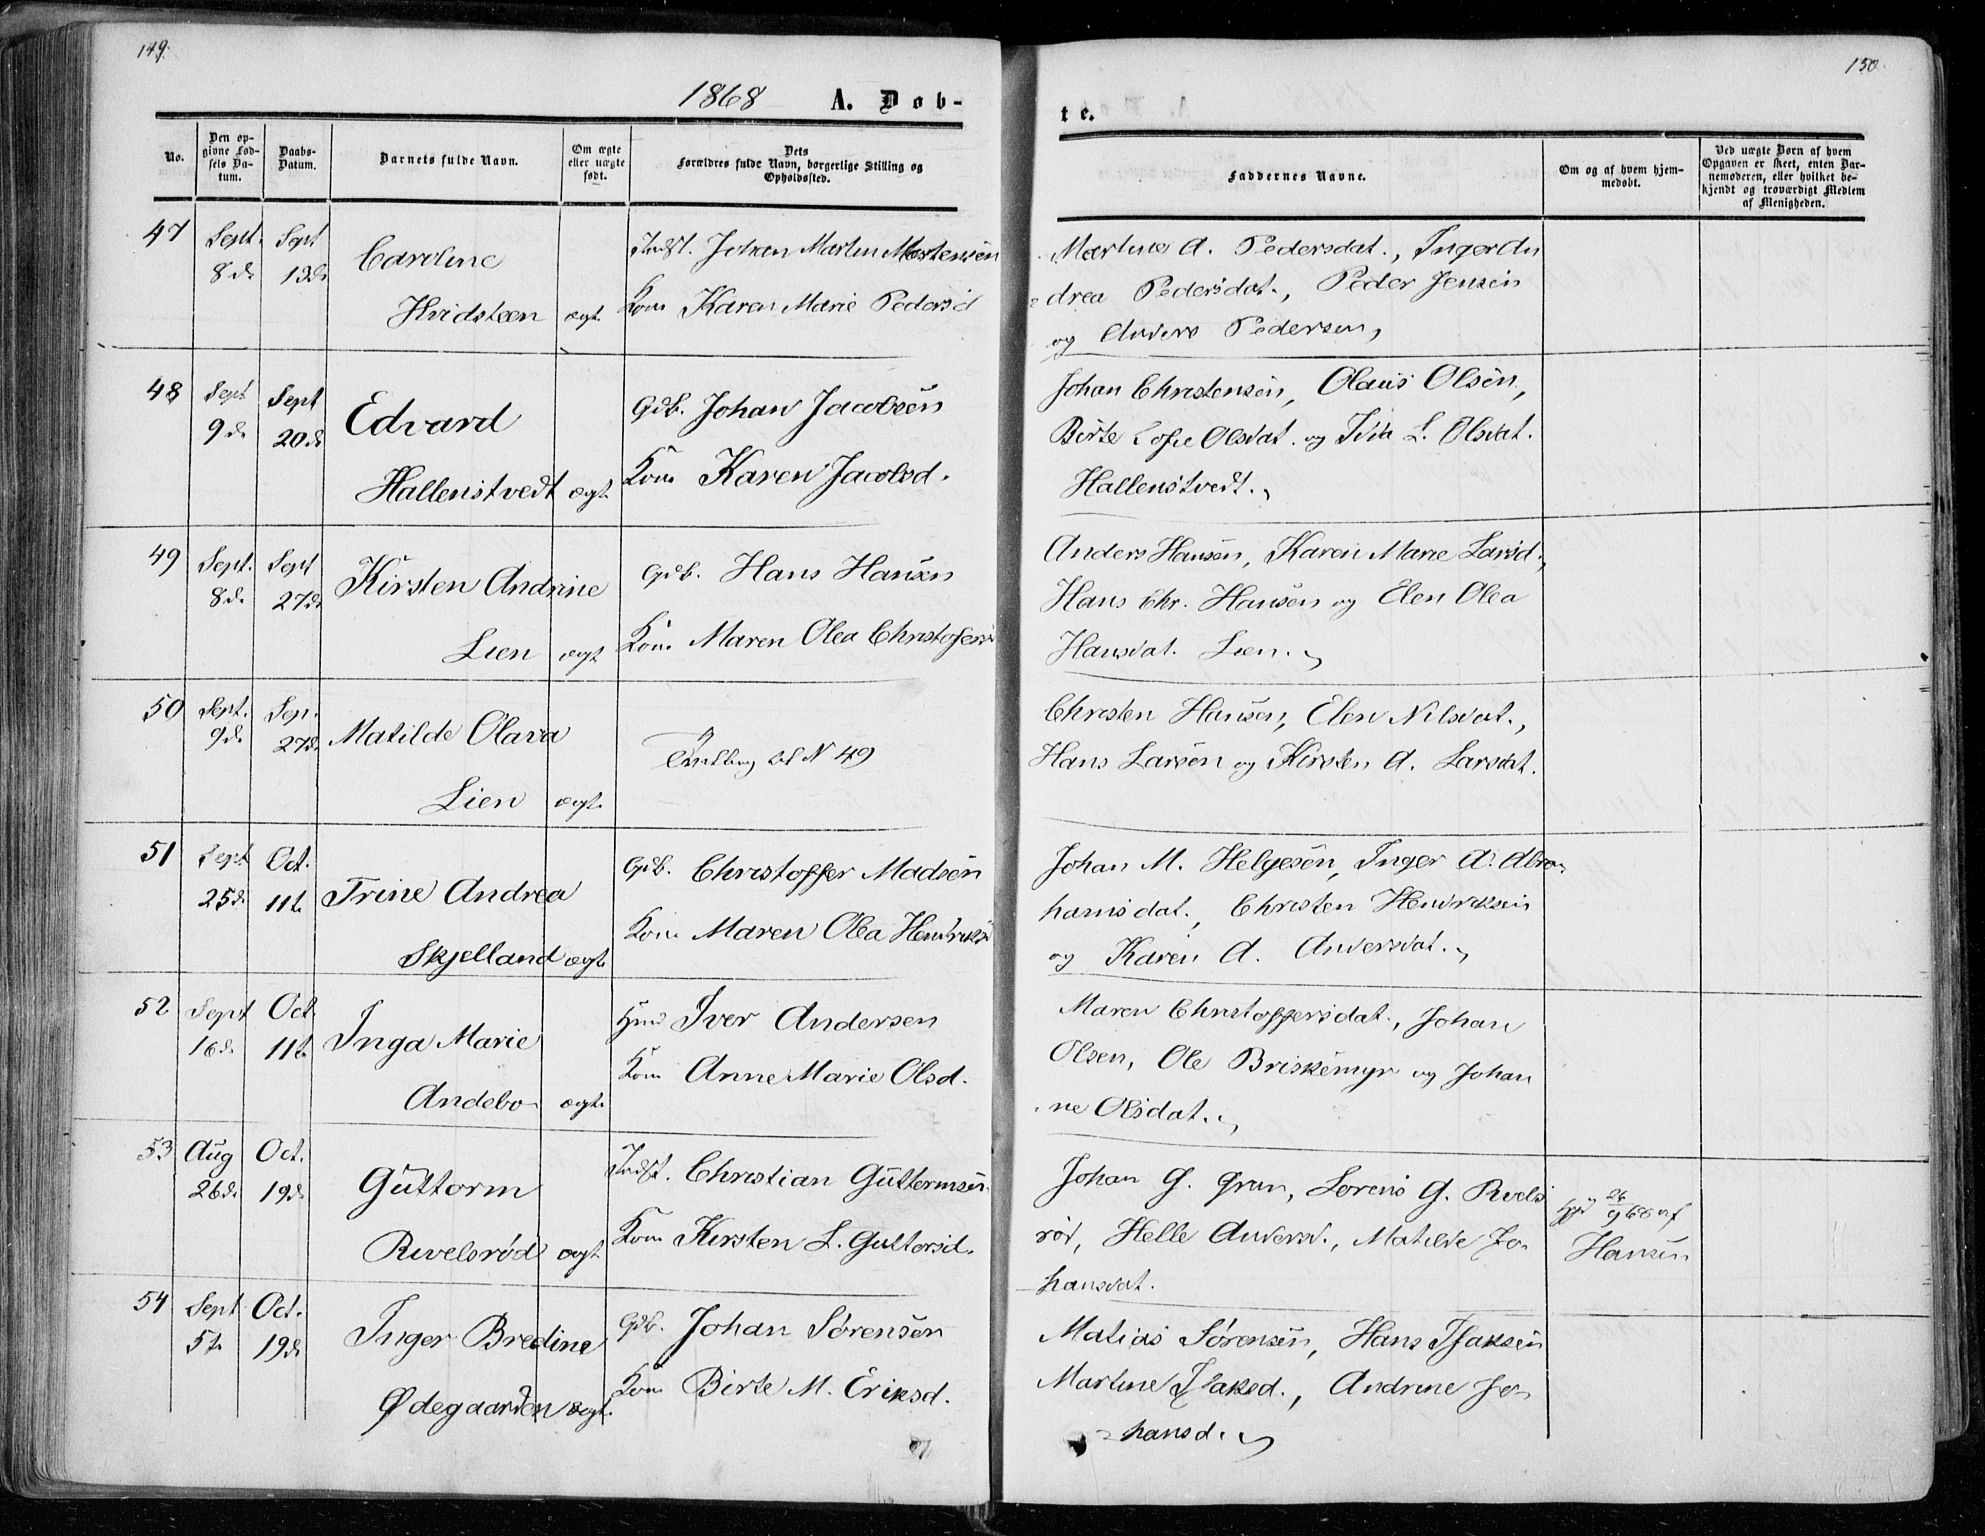 149.
150.
1868 A. Døb-
te.
No.
Den op-
givne Fød-
sels Da-
tum.
Daabs-
Datum.
Barnets fulde Navn.
Om ægte
eller uægte
født.
Dets
Forældres fulde Navn, borgerlige Stilling og
Opholdssted.
Faddernes Navne.
Om og af hvem hjem-
medøbt.
Ved uægte Børn af hvem
Opgaven er skeet, enten Bar-
nemoderen, eller hvilket be-
kjendt og troværdigt Medlem
af Menigheden.
47 Sept. 8de Sept 13de Caroline
Hvidsteen ægt.
Indst. Johan Martin Mortensen
Kone Karen Marie Pedersd
Martine A. Pedersdat., Inger An
drea Pedersdat., Peder Jensen
og Anders Pedersen,
48 Sept 9de Sept 20de Edvard
Hallenstvedt ægt.
Gdb. Johan Jacobsen
Kone Karen Jacobsd.
Johan Christensen, Olaus Olsen,
Birte Sofie Olsdat. og L. Olsdat.
Hallenstvedt.
49 Sept. 8de Sept 27de Kirsten Andrine
Lien ægt
Gdb. Hans Hansen
Kone Maren Olea Christofersd
Anders Hansen, Karen Marie Larsd.,
Hans Chr. Hansen og Elen Olea
Hansdat. Lien.
50 Sept. 9de Sep. 27de Matilde Olava
Lien ægt.
Tvilling til N 49
Christen Hansen, Elen Nilsdat.,
Hans Larsen og Kirsten A. Larsdat.
51 Sept 25de Oct. 11te Trine Andrea
Skjelland ægt
Gdb. Christoffer Madsen
Kone Maren Olea Hendriksd
Johan M. Helgesen, Inger A. Abra-
hamsdat., Christen Hendriksen
og Karen A. Andersdat.
52 Sept 16de Oct. 11te Inga Marie
Andebo ægt.
Hmd Iver Andersen
Kone Anne Marie Olsd.
Maren Christoffersdat., Johan
Olsen, Ole Briskemyr og Johan
ne Olsdat.
53 Aug 26de Oct. 19de Guttorm
Rivelsrød ægt
Indst. Christian Guttormsen
Kone Kirsten L. Guttorsd.
Johan G. Gran, Lorens G. Rvels
rød, Helle Andersd., Matilde Jo-
hansdat.
Hjd 26/9 68 af
Hansen
54 Sept 5te Oct. 19de Inger Bredine
Ødegaarden ægt.
Gdb. Johan Sørensen
Kone Birte M. Eriksd.
Matias Sørensen, Hans Isaksen
Martine Isaksd., Andrine Jo-
hansd.